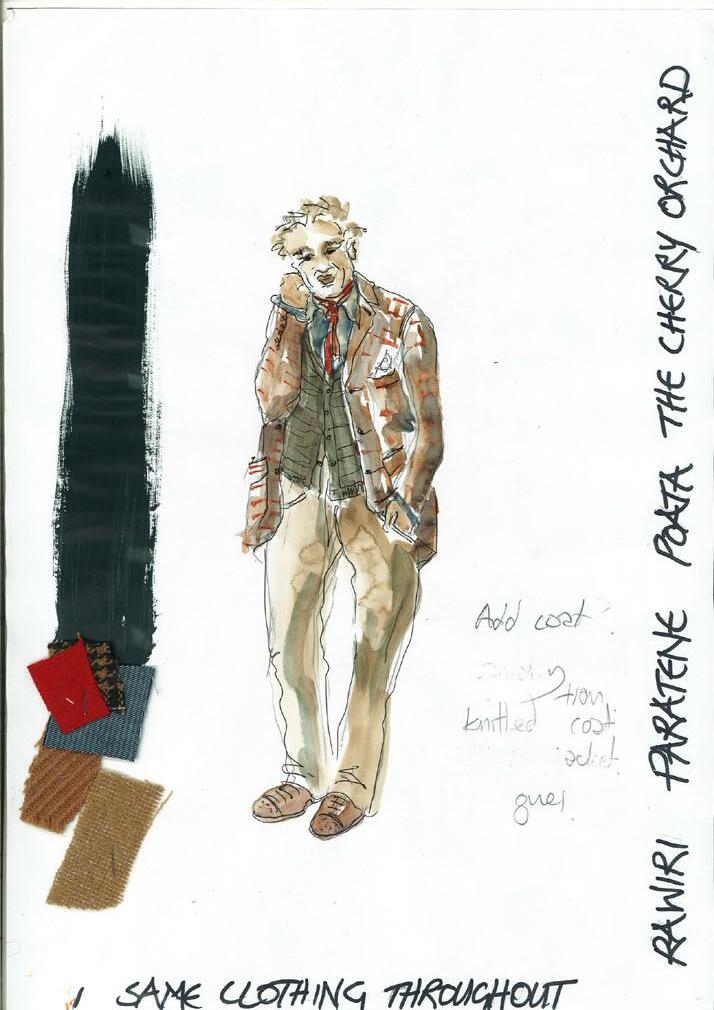 RAWIRI PARATENE POATA THE CHERRY ORCHARD
Add coat?
knitted coat
SAME CLOTHING THROUGHOUT